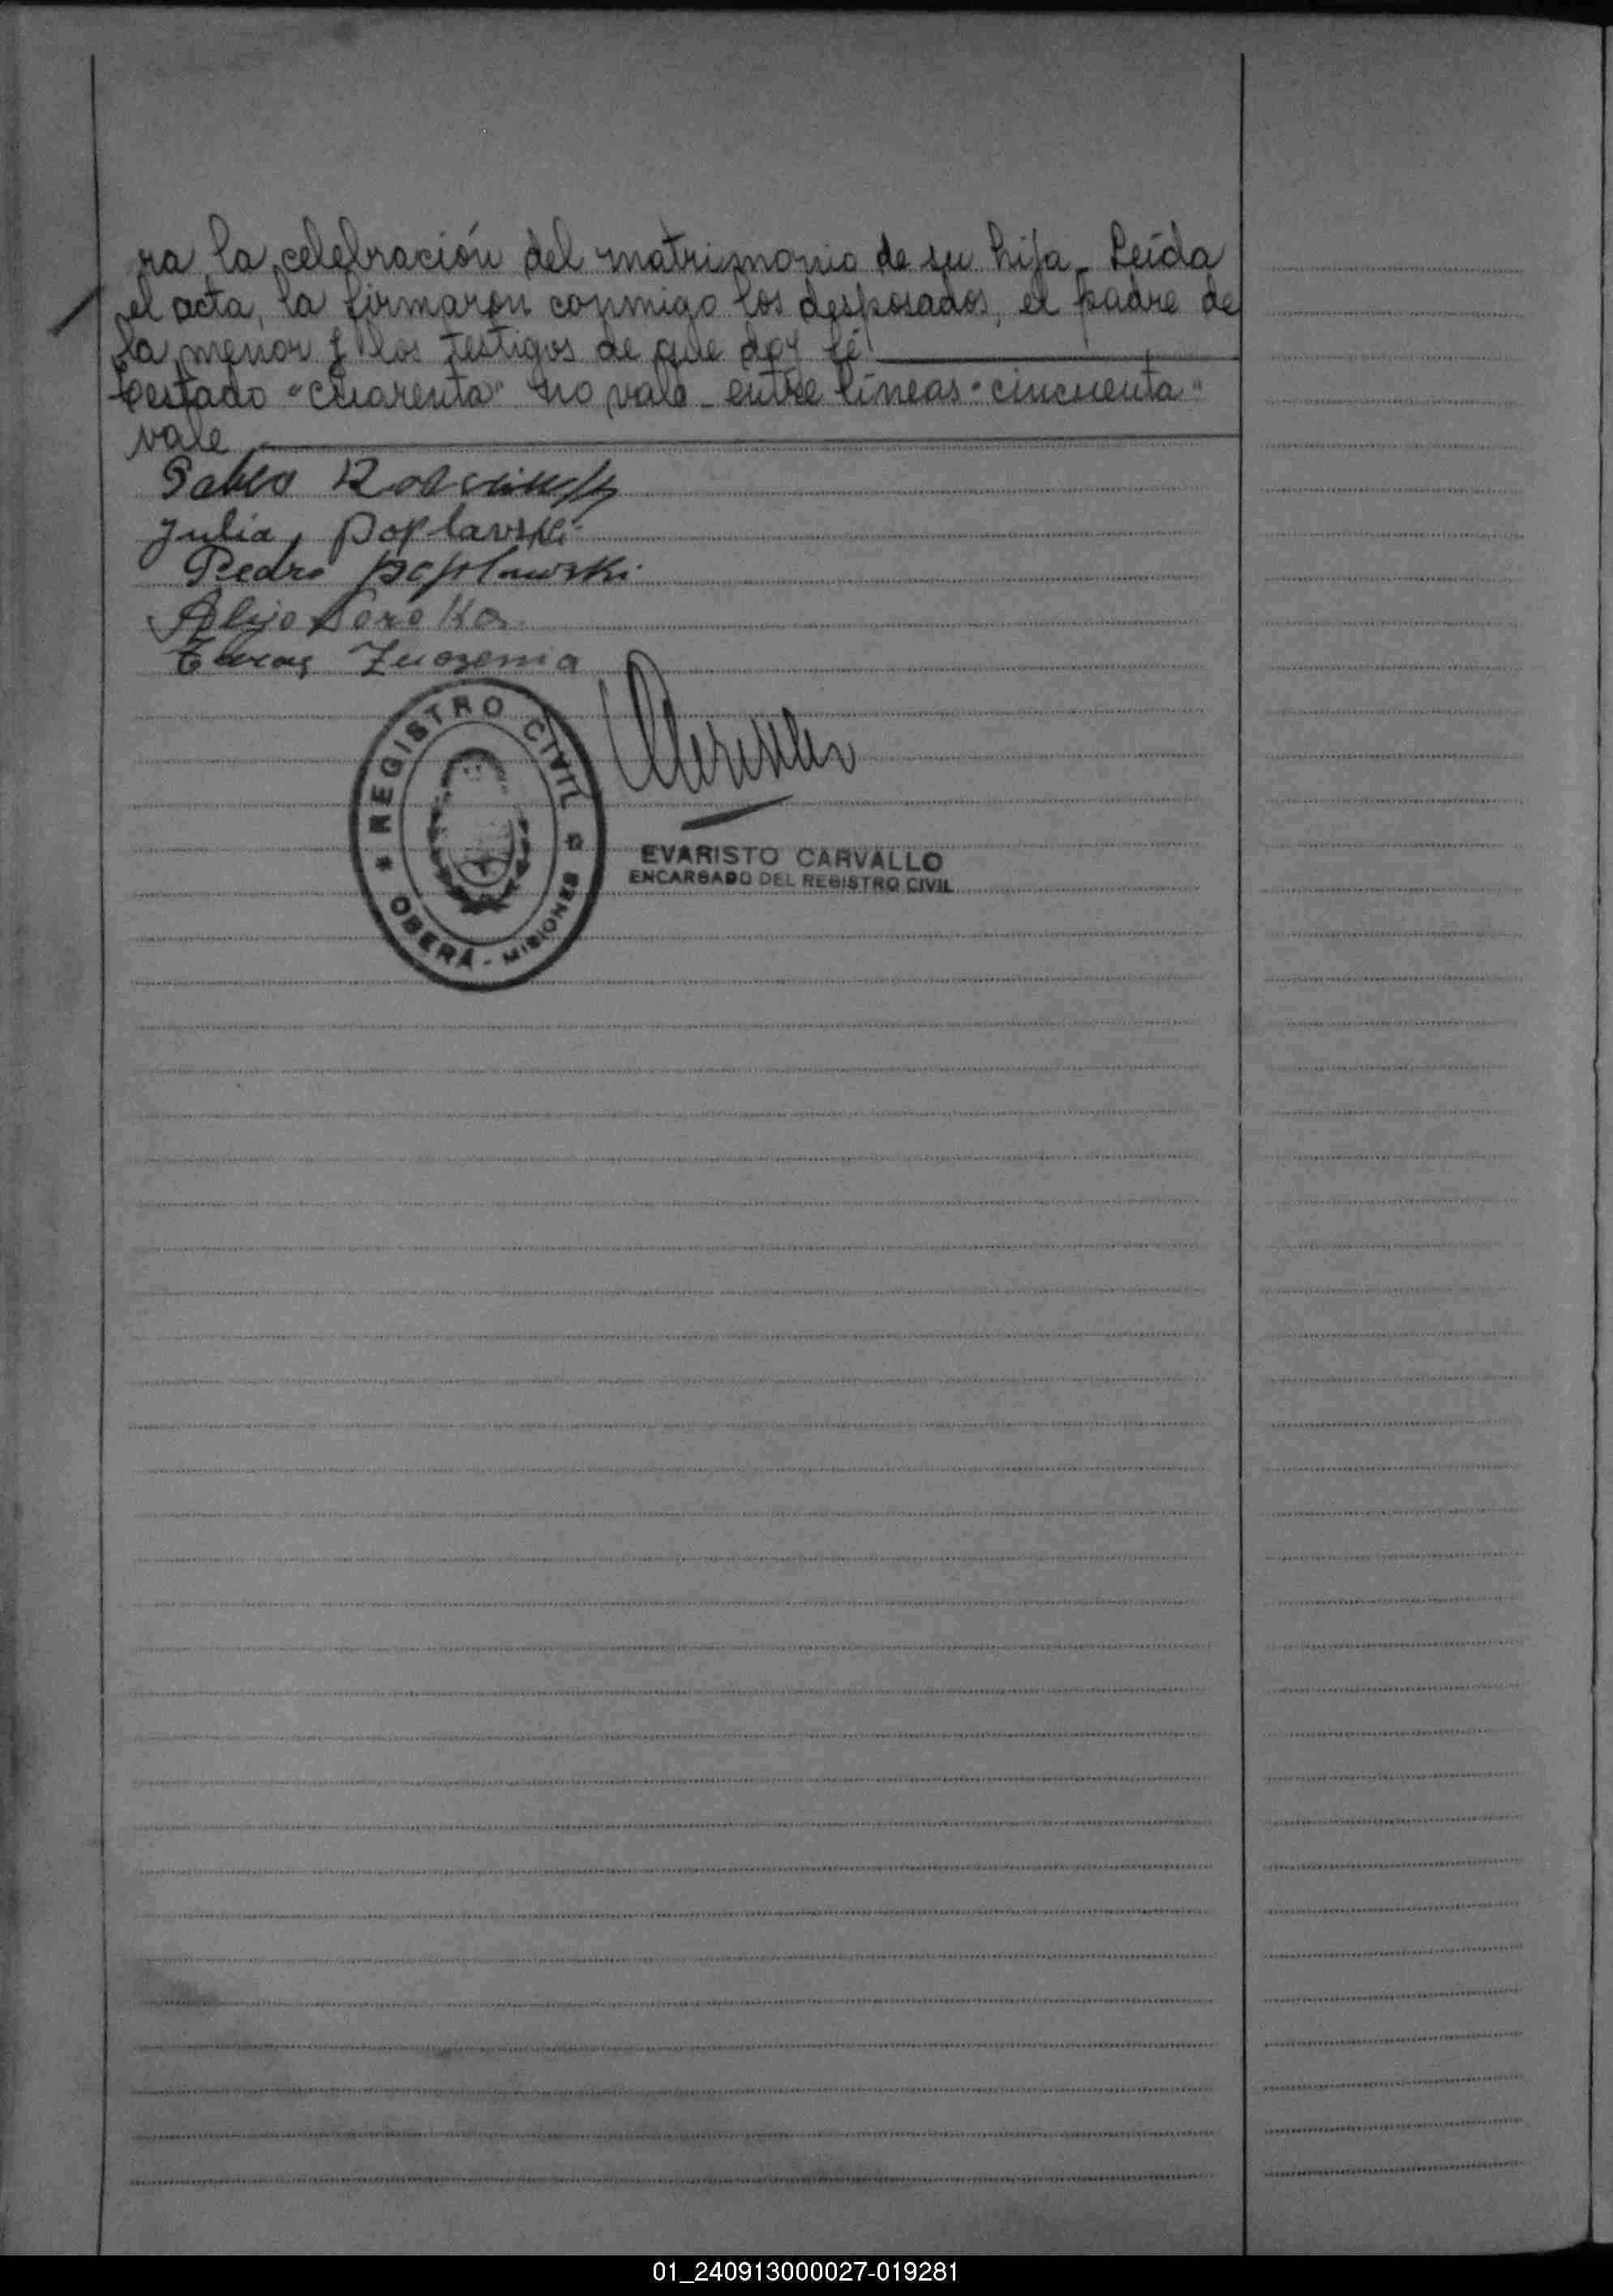 ra la celebración del matrimonio de su hija_ Leída
el acta, la firmaron conmigo los desposados, el padre de
la menor y los testigos de que doy fé
testado "cuarenta" no vale_ entre líneas "cincuenta"
vale
Pablo
Julia Poplavski
Pedro Poplowski
Alejo Soroka
REGISTRO CIVIL
OBERÁ - MISIONES
EVARISTO CARVALLO
ENCARGADO DEL REGISTRO CIVIL
01_240913000027-019281